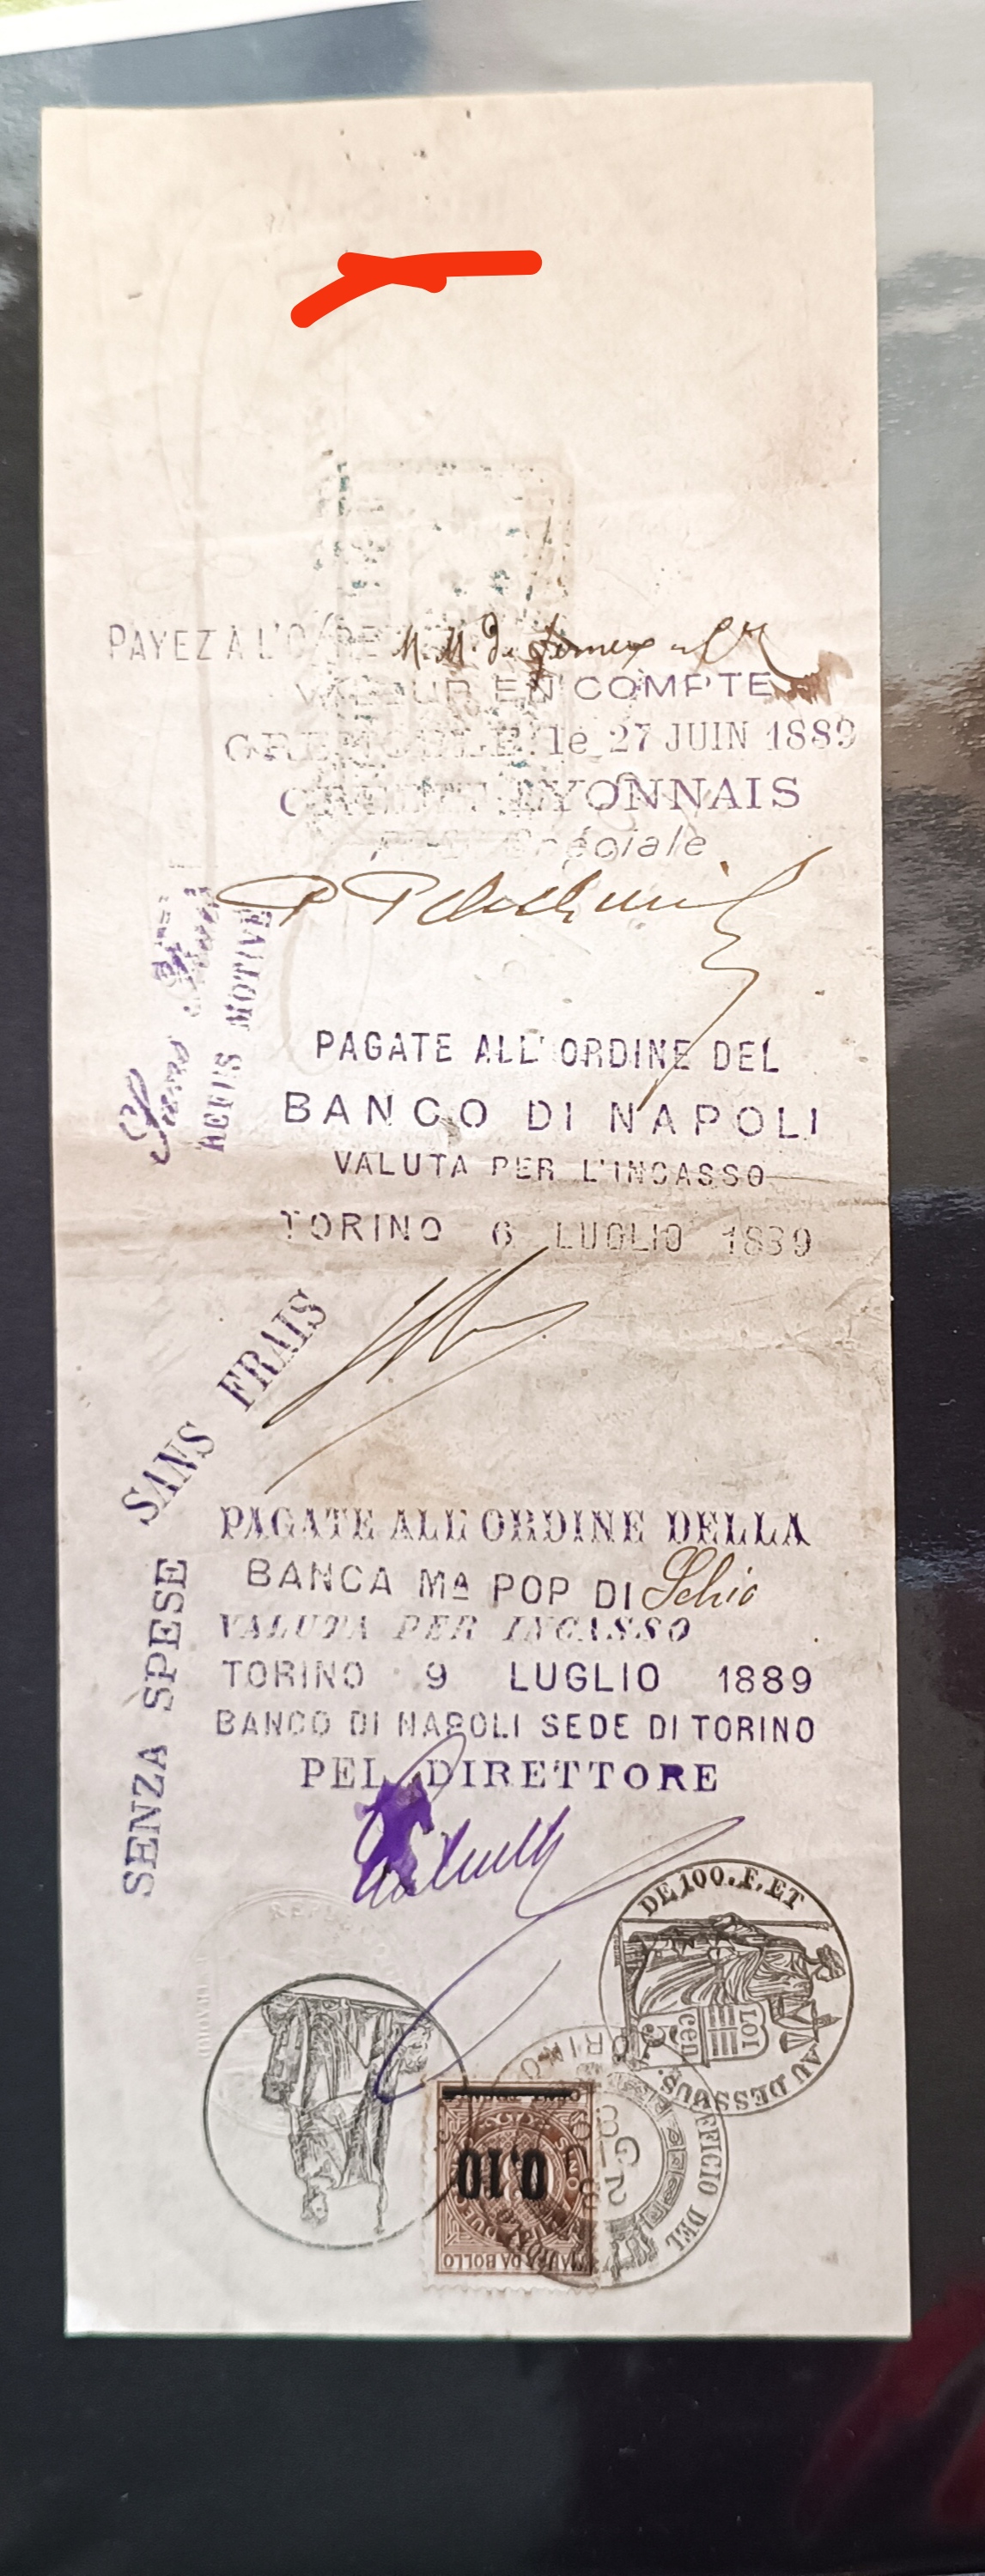 PAYEZ À L'ORDRE M.M. de
VALEUR EN COMPTE
GRENOBLE, le 27 JUIN 1889
CRÉDIT LYONNAIS
Spéciale
REFUS MOTIVÉ
PAGATE ALL' ORDINE DEL
BANCO DI NAPOLI
VALUTA PER L'INCASSO
TORINO 6 LUGLIO 1889
SANS FRAIS
SENZA SPESE
PAGATE ALL ORDINE DELLA
BANCA Mª POP DI Schio
VALUTA PER INCASSO
TORINO 9 LUGLIO 1889
BANCO DI NAPOLI SEDE DI TORINO
PEL DIRETTORE
DE 100.F. ET
AU DESSOUS.
LOI
5 cen
TORINO
0,10
MARCA DA BOLLO